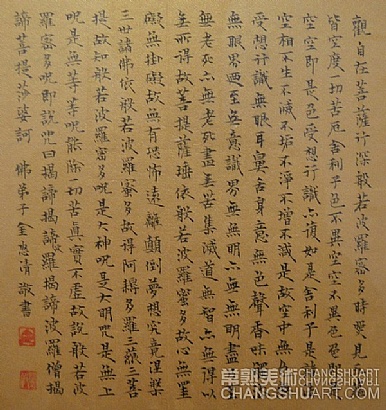 觀自在菩薩行深般若波羅蜜多時照見
皆空度一切苦厄舍利子色不異空空不異色色
空空即是色受想行識亦復如是舍利子是
空相不生不滅不垢不淨不增不減是故空中無
受想行識無眼耳鼻舌身意無色聲香味
無眼界乃至無意識界無無明亦無無明盡
無老死亦無老死盡無苦集滅道無智亦無得以
無所得故菩提薩埵依般若波羅蜜多故心無罣
礙無掛礙故無有恐怖遠離顛倒夢想究竟涅槃
三世諸佛依般若波羅蜜多故得阿耨多羅三藐三菩
提故知般若波羅蜜多咒是大神咒是大明咒是無上
咒是無等等咒能除一切苦真實不虛故說般若波
羅蜜多咒即說咒曰揭諦揭諦波羅揭諦波羅僧揭
諦菩提莎婆訶 佛弟子金惠清敬書
常熟美術
CHANGSHUART
CHANGSHUART.COM